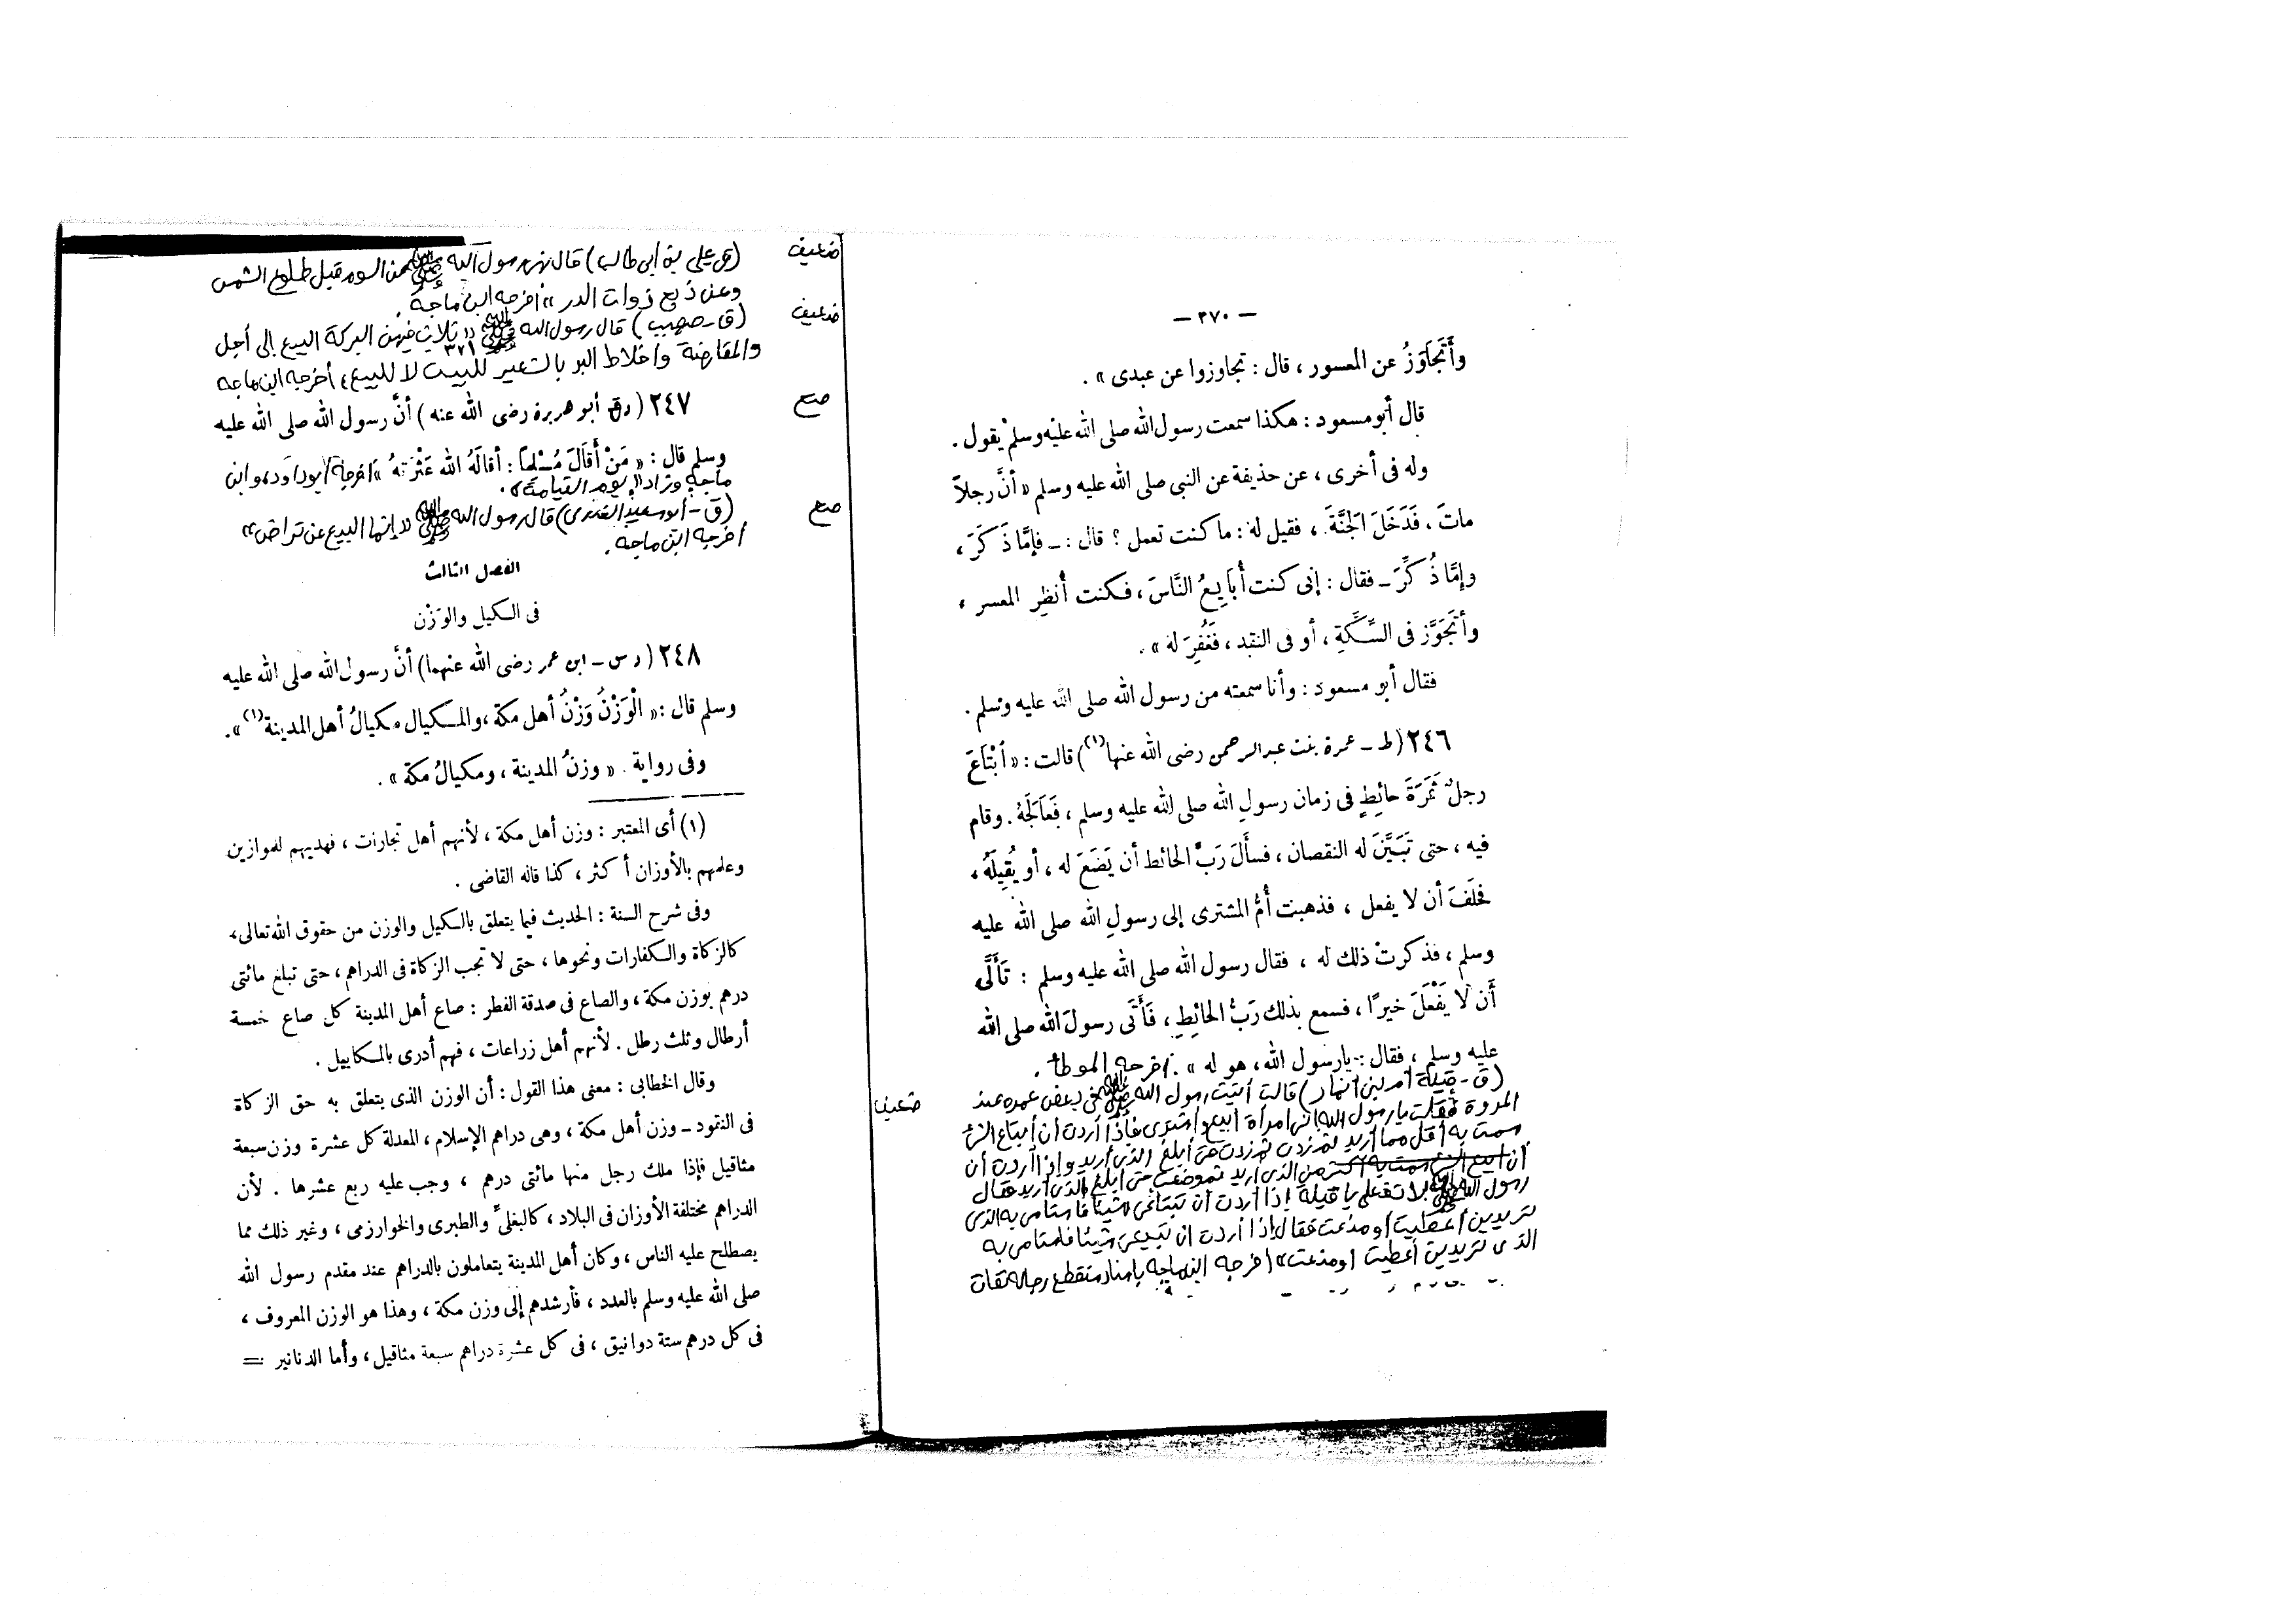 — ٣٧٠ —
وأَتَجَاوَزُ عن المعسور ، قال : تجاوزوا عن عبدى » .
قال أبو مسعود : هكذا سمعت رسول الله صلى الله عليه وسلم يقول .
وله فى أخرى ، عن حذيفة عن النبى صلى الله عليه وسلم « أنَّ رجلاً
ماتَ ، فَدَخَلَ الْجَنَّةَ ، فقيل له : ما كنت تعمل ؟ قال : ـ فإمَّا ذَكَرَ ،
وإمَّا ذُكِّرَ ـ فقال : إنى كنت أُبَايِعُ النَّاسَ ، فكنت أُنظِر المعسر ،
وأَتَجَوَّز فى السِّكَّةِ ، أو فى النقد ، فَغُفِرَ له » .
فقال أبو مسعود : وأنا سمعته من رسول الله صلى الله عليه وسلم .
٢٤٦ (ط ـ عمرة بنت عبد الرحمن رضى الله عنها (١)) قالت : « ابْتَاعَ
رجلٌ ثَمَرَةَ حائِطٍ فى زمان رسولِ الله صلى الله عليه وسلم ، فَعَالَجَهُ . وقام
فيه ، حتى تَبَيَّنَ له النقصان ، فسأَلَ رَبَّ الحائط أن يَضَعَ له ، أو يُقِيلَهُ ،
فحلَفَ أن لا يفعل ، فذهبت أُمُّ المشترى إلى رسولِ الله صلى الله عليه
وسلم ، فذكرتْ ذلك له ، فقال رسول الله صلى الله عليه وسلم : تَأَلَّى
أَن لا يَفْعَلَ خيرًا ، فسمع بذلك رَبُّ الحائِطِ ، فَأَتَى رسولَ الله صلى الله
عليه وسلم ، فقال : يا رسول الله ، هو له » . أخرجه الموطأ .
(ق ـ قيلة أم بنى أنمار) قالت أتيت رسول الله ﷺ فى بعض عمره عند
المروة فقلت يا رسول الله إنى امرأة أبيع وأشترى فإذا أردت أن أبتاع الشئ
سمت به أقل مما أريد ثم زدت ثم زدت حتى أبلغ الذى أريد وإذا أردت أن
أن أبيع الشئ سمت به أكثر من الذى أريد ثم وضعت حتى أبلغ الذى أريد فقال
رسول الله ﷺ لا تفعلى يا قيلة إذا أردت أن تبتاعى شيئا فاستامى به الذى
تريدين أعطيت أو منعت فقال إذا أردت أن تبيعى شيئا فاستامى به
الذى تريدين أعطيت أو منعت » أخرجه ابن ماجه بإسناد منقطع رجاله ثقات
ضعيف
ضعيف
(ق على بن أبى طالب) قال نهى رسول الله ﷺ عن السوم قبل طلوع الشمس
وعن ذبح ذوات الدر » أخرجه ابن ماجه .
ضعيف
(ق ـ صهيب) قال رسول الله ﷺ « ثلاث فيهن البركة البيع إلى أجل
٣٧١
والمقارضة وإخلاط البر بالشعير للبيت لا للبيع » أخرجه ابن ماجه
صح
٢٤٧ (دق أبو هريرة رضى الله عنه) أنَّ رسول الله صلى الله عليه
وسلم قال : « مَنْ أَقَالَ مُسْلِمًا : أقالَهُ الله عَثْرَتهُ » أخرجه أبو داود، وابن
ماجه وزاد « يوم القيامة » .
صح
(ق ـ أبو سعيد الخدرى) قال رسول الله ﷺ « إنما البيع عن تراض »
أخرجه ابن ماجه .
الفصل الثالث
فى الكيل والوَزْن
٢٤٨ (د س ـ ابن عمر رضى الله عنهما) أنَّ رسول الله صلى الله عليه
وسلم قال : « الْوَزْنُ وَزْنُ أهل مكة ، والمكيال مكيالُ أهل المدينة (١) » .
وفى رواية . « وزنُ المدينة ، ومكيالُ مكة » .
(١) أى المعتبر : وزن أهل مكة ، لأنهم أهل تجارات ، فهديهم للموازين
وعلمهم بالأوزان أكثر ، كذا قاله القاضى .
وفى شرح السنة : الحديث فيما يتعلق بالكيل والوزن من حقوق الله تعالى ،
كالزكاة والكفارات ونحوها ، حتى لا تجب الزكاة فى الدراهم ، حتى تبلغ مائتى
درهم بوزن مكة ، والصاع فى صدقة الفطر : صاع أهل المدينة كل صاع خمسة
أرطال وثلث رطل . لأنهم أهل زراعات ، فهم أدرى بالمكاييل .
وقال الخطابى : معنى هذا القول : أن الوزن الذى يتعلق به حق الزكاة
فى النقود ـ وزن أهل مكة ، وهى دراهم الإسلام ، المعدلة كل عشرة وزن سبعة
مثاقيل فإذا ملك رجل منها مائتى درهم ، وجب عليه ربع عشرها . لأن
الدراهم مختلفة الأوزان فى البلاد ، كالبغلىِّ والطبرى والخوارزمى ، وغير ذلك مما
يصطلح عليه الناس ، وكان أهل المدينة يتعاملون بالدراهم عند مقدم رسول الله
صلى الله عليه وسلم بالعدد ، فأرشدهم إلى وزن مكة ، وهذا هو الوزن المعروف ،
فى كل درهم ستة دوانيق ، فى كل عشرة دراهم سبعة مثاقيل ، وأما الدنانير =